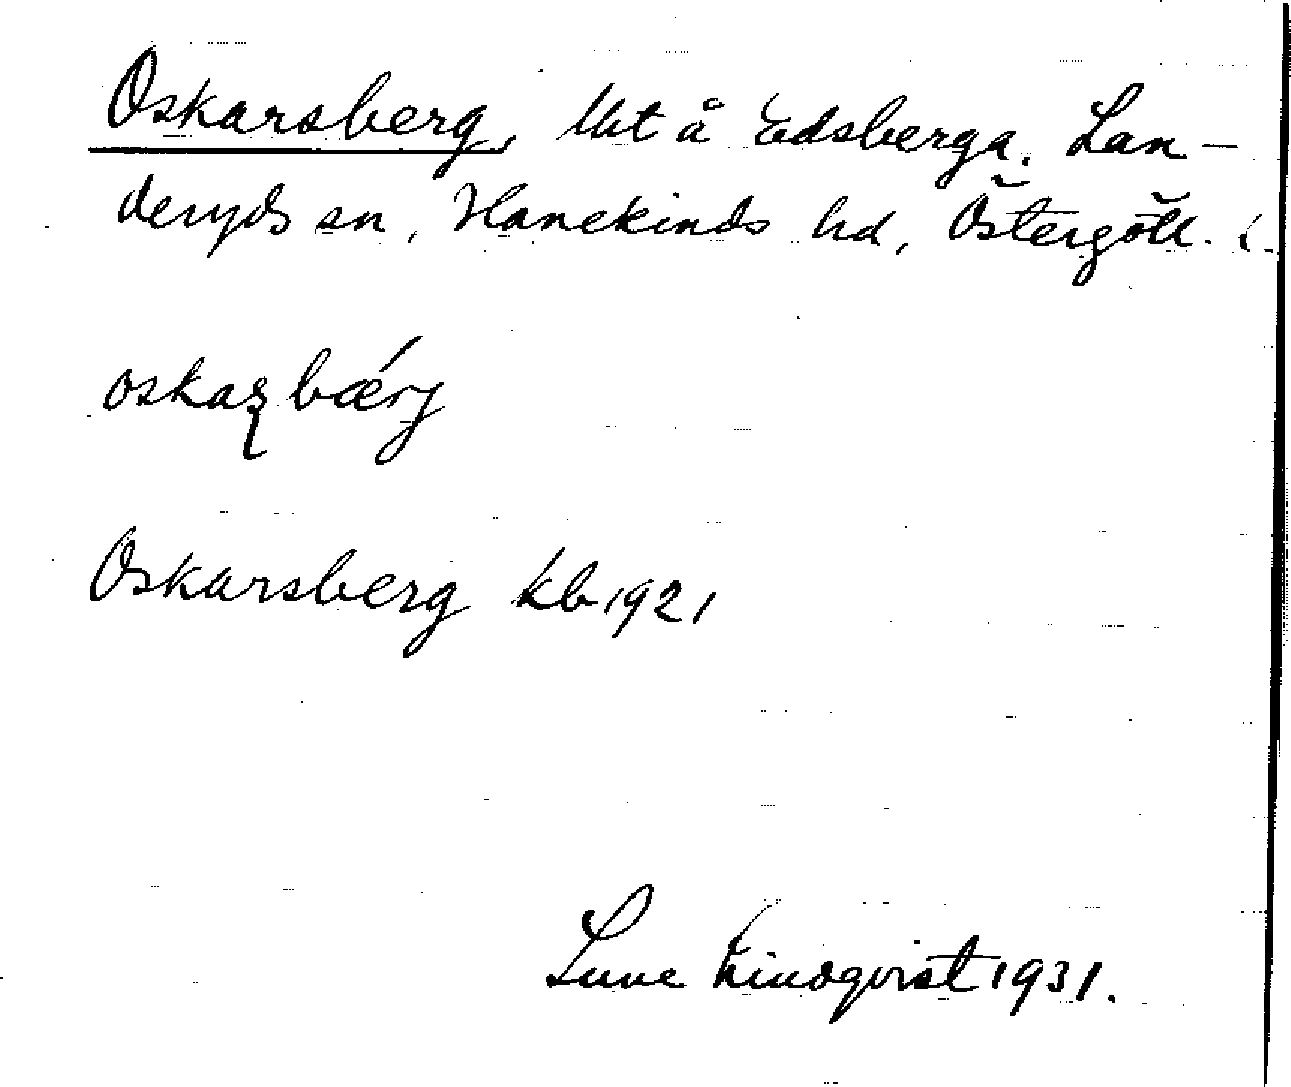 Oskarsberg, lht å Edsberga, Lan-
deryds sn, Hanekinds hd, Östergötl. l.
oskaʂbǽrj
Oskarsberg kb 1921
Sune Lindqvist 1931.